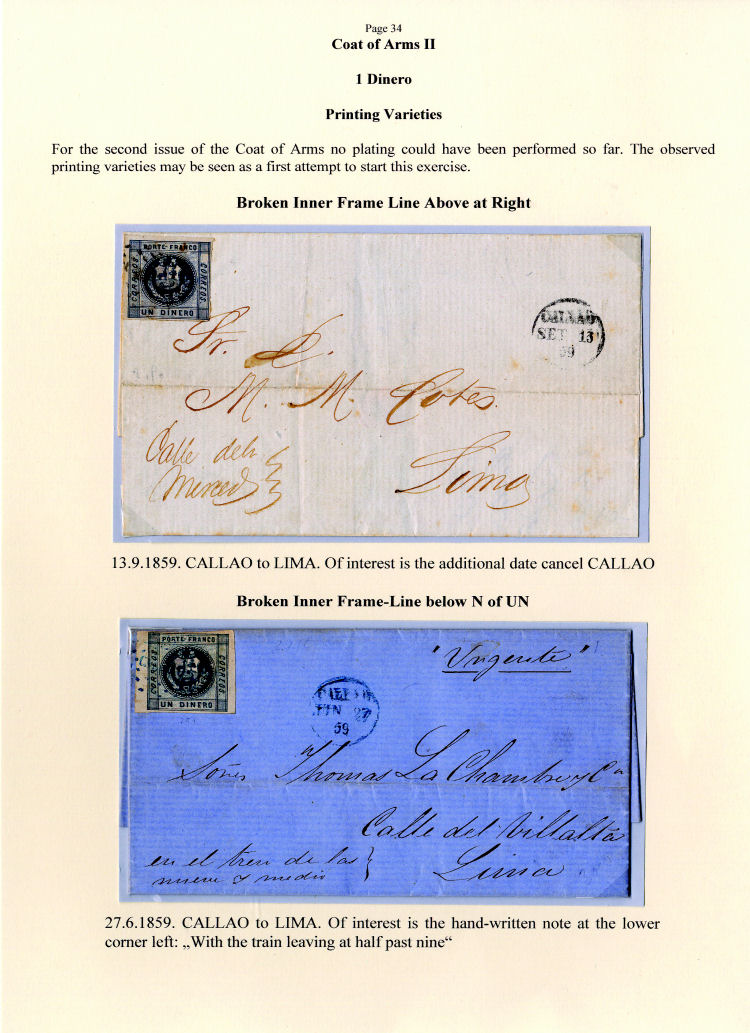 Page 34
Coat of Arms II
1 Dinero
Printing Varieties
For the second issue of the Coat of Arms no plating could have been performed so far. The observed
printing varieties may be seen as a first attempt to start this exercise.
Broken Inner Frame Line Above at Right
PORTE FRANCO
CORREOS
CORREOS
UN DINERO
CALLAO
SET 13
59
Sr. D.
M. M. Cotes.
Calle dela
Merced
Lima
13.9.1859. CALLAO to LIMA. Of interest is the additional date cancel CALLAO
Broken Inner Frame-Line below N of UN
PORTE FRANCO
CORREOS
CORREOS
UN DINERO
"Urgente"
CALLAO
JUN 27
59
Thomas La Chambre y Cª
Calle del Villalta
Lima
en el tren de las
nueve y media
27.6.1859. CALLAO to LIMA. Of interest is the hand-written note at the lower
corner left: „With the train leaving at half past nine“